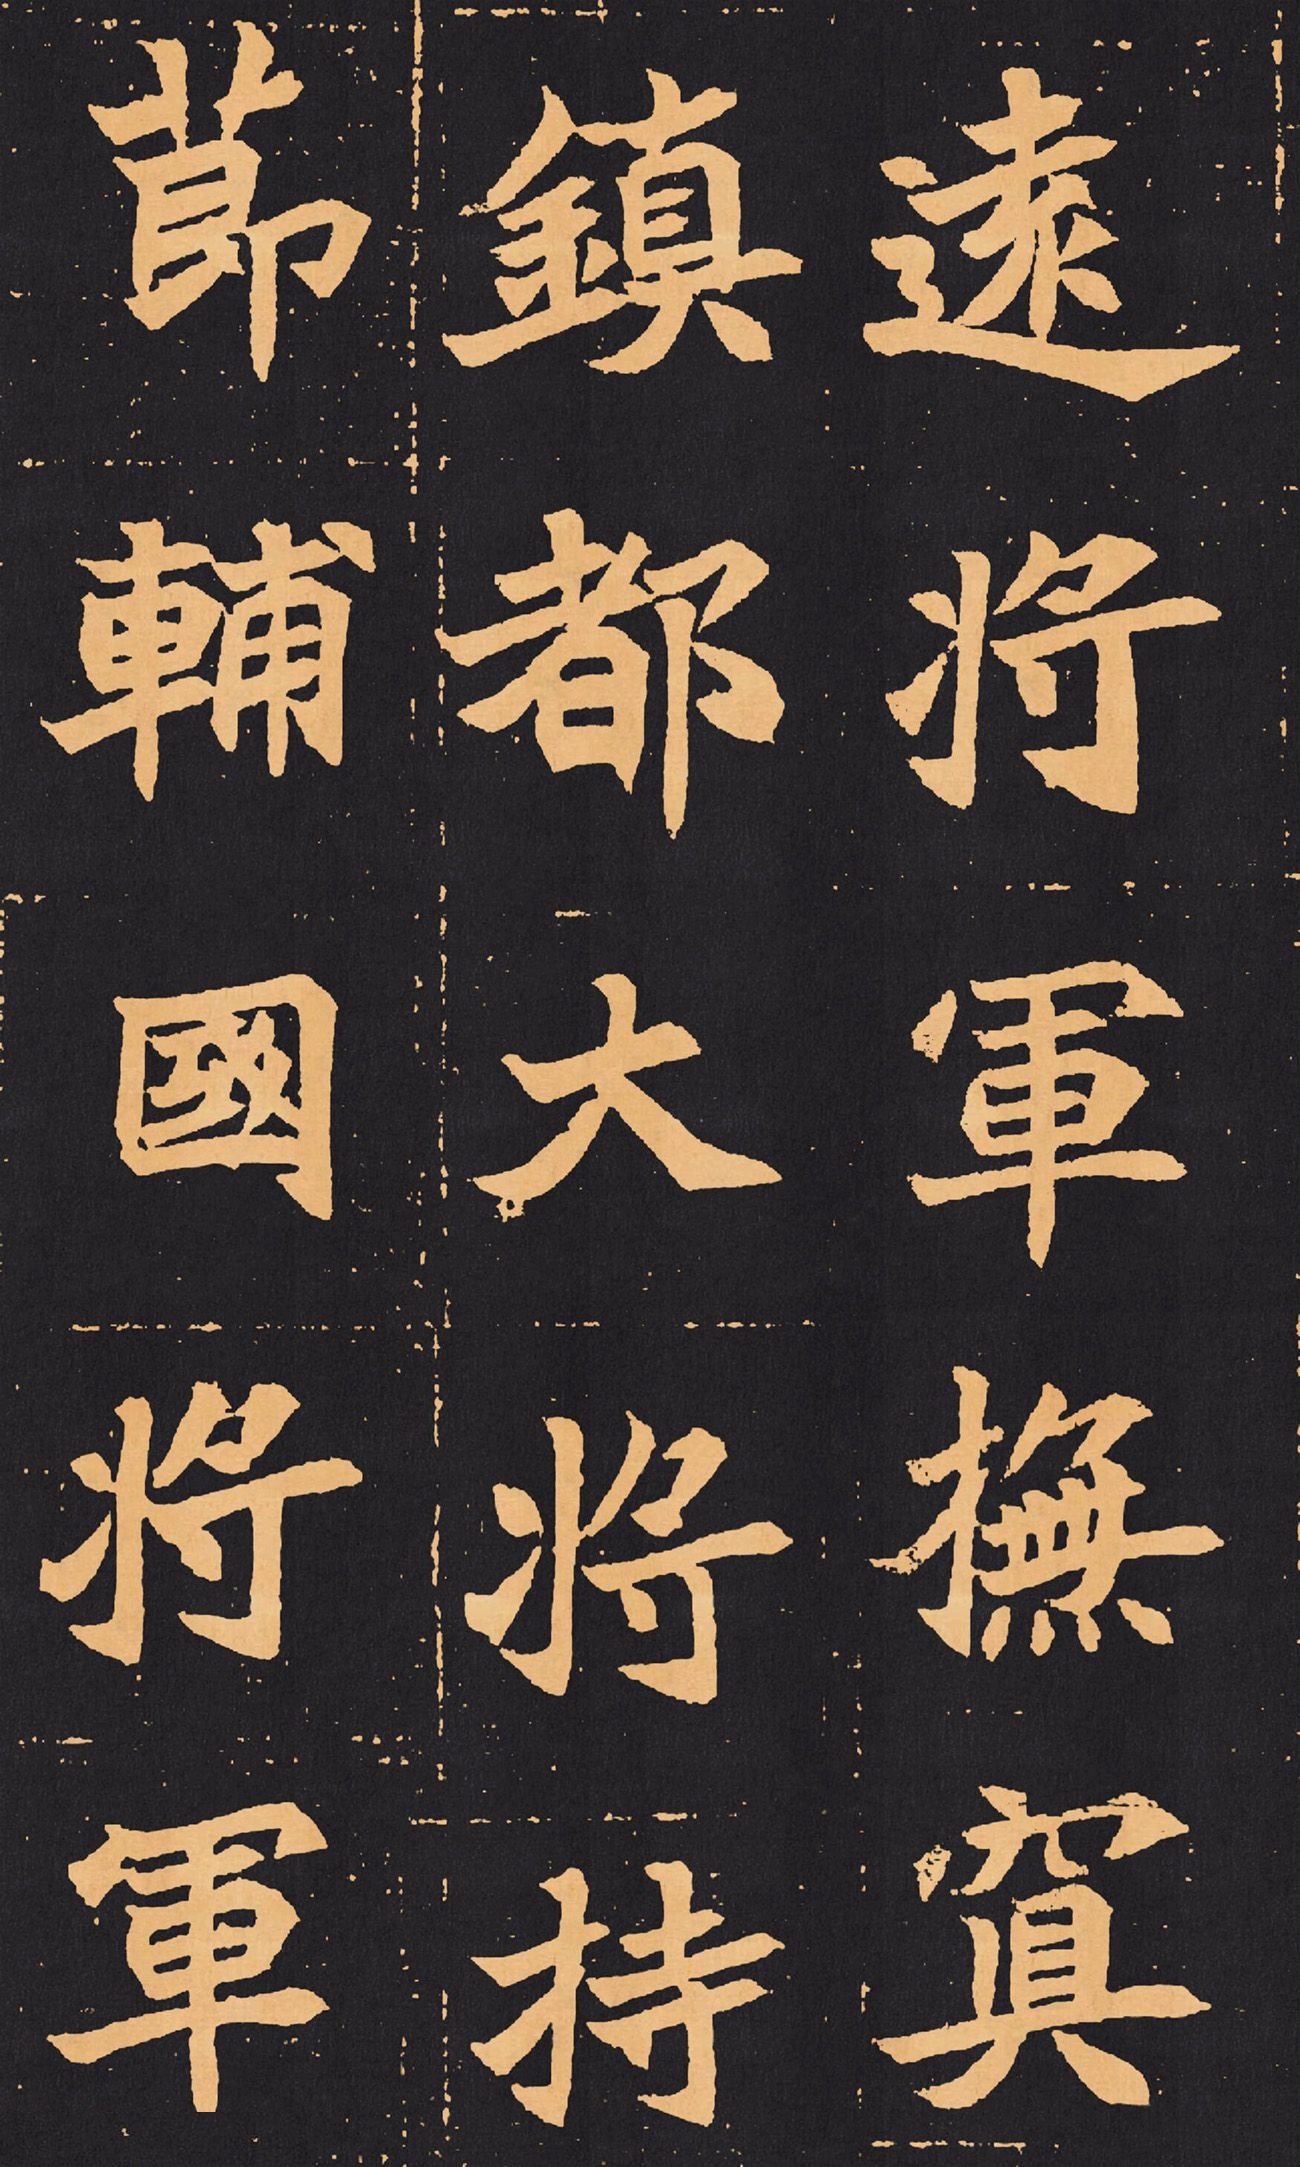 遠將軍撫寘
鎮都大將持
節輔國將軍